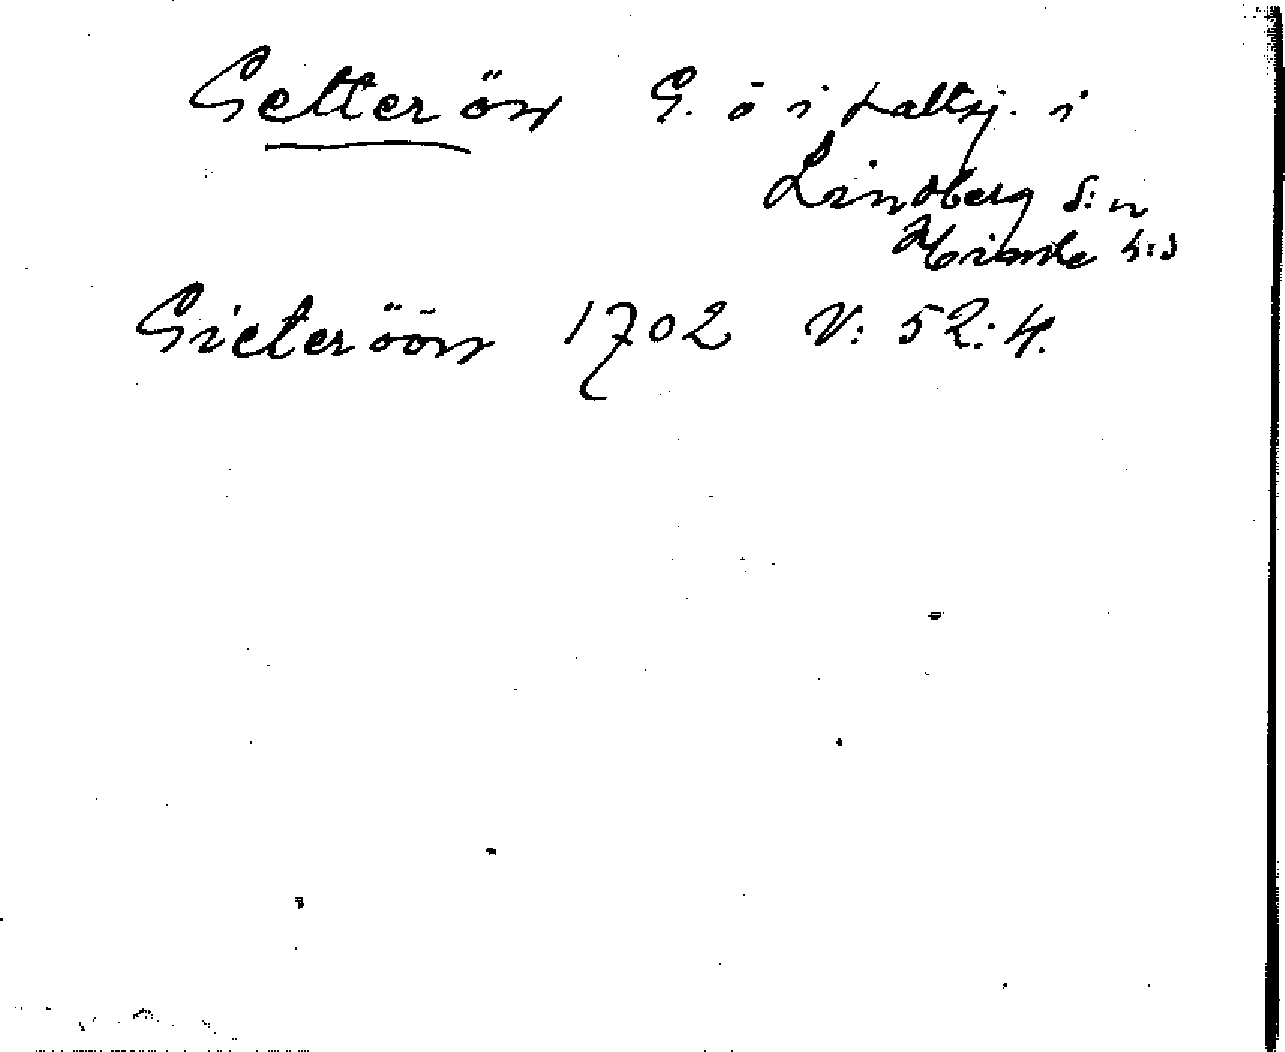 Getterön G. ö i saltsj. i
Lindberg s:n
Himle h:d
Gieteröön 1702 V: 52: 4.